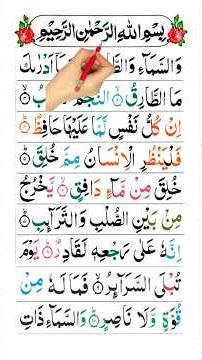 بِسْمِ اللّٰهِ الرَّحْمٰنِ الرَّحِيْمِ
وَالسَّمَآءِ وَالطَّ آ اَدْرٰىكَ
مَا الطَّارِقُ النَّجْمُ بُ
اِنْ كُلُّ نَفْسٍ لَّمَّا عَلَيْهَا حَافِظٌ
فَلْيَنْظُرِ الْاِنْسَانُ مِمَّ خُلِقَ
خُلِقَ مِنْ مَّآءٍ دَافِقٍ يَّخْرُجُ
مِنْۢ بَيْنِ الصُّلْبِ وَالتَّرَآئِبِ
اِنَّهٗ عَلٰى رَجْعِهٖ لَقَادِرٌ يَوْمَ
تُبْلَى السَّرَآئِرُ فَمَا لَهٗ مِنْ
قُوَّةٍ وَّلَا نَاصِرٍ وَالسَّمَآءِ ذَاتِ